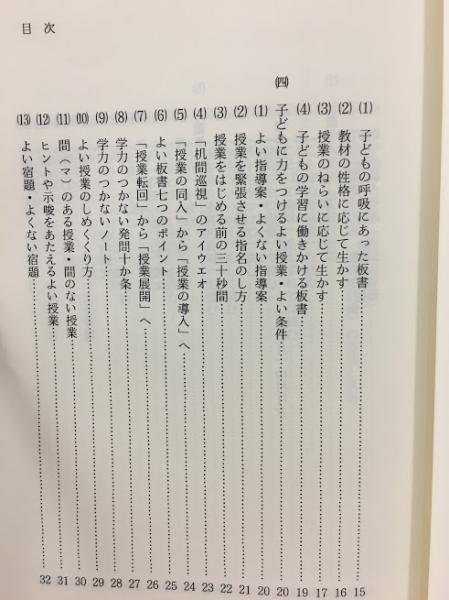 目次
(1) 子どもの呼吸にあった板書……15
(2) 教材の性格に応じて生かす……16
(3) 授業のねらいに応じて生かす……17
(4) 子どもの学習に働きかける板書……19
㈣ 子どもに力をつけるよい授業・よい条件……20
(1) よい指導案・よくない指導案……20
(2) 授業を緊張させる指名のし方……21
(3) 授業をはじめる前の三十秒間……22
(4) 「机間巡視」のアイウエオ……23
(5) 「授業の同入」から「授業の導入」へ……24
(6) よい板書七つのポイント……25
(7) 「授業転回」から「授業展開」へ……26
(8) 学力のつかない発問十か条……27
(9) 学力のつかないノート……28
(10) よい授業のしめくくり方……29
(11) 間(マ)のある授業・間のない授業……30
(12) ヒントや示唆をあたえるよい授業……31
(13) よい宿題・よくない宿題……32